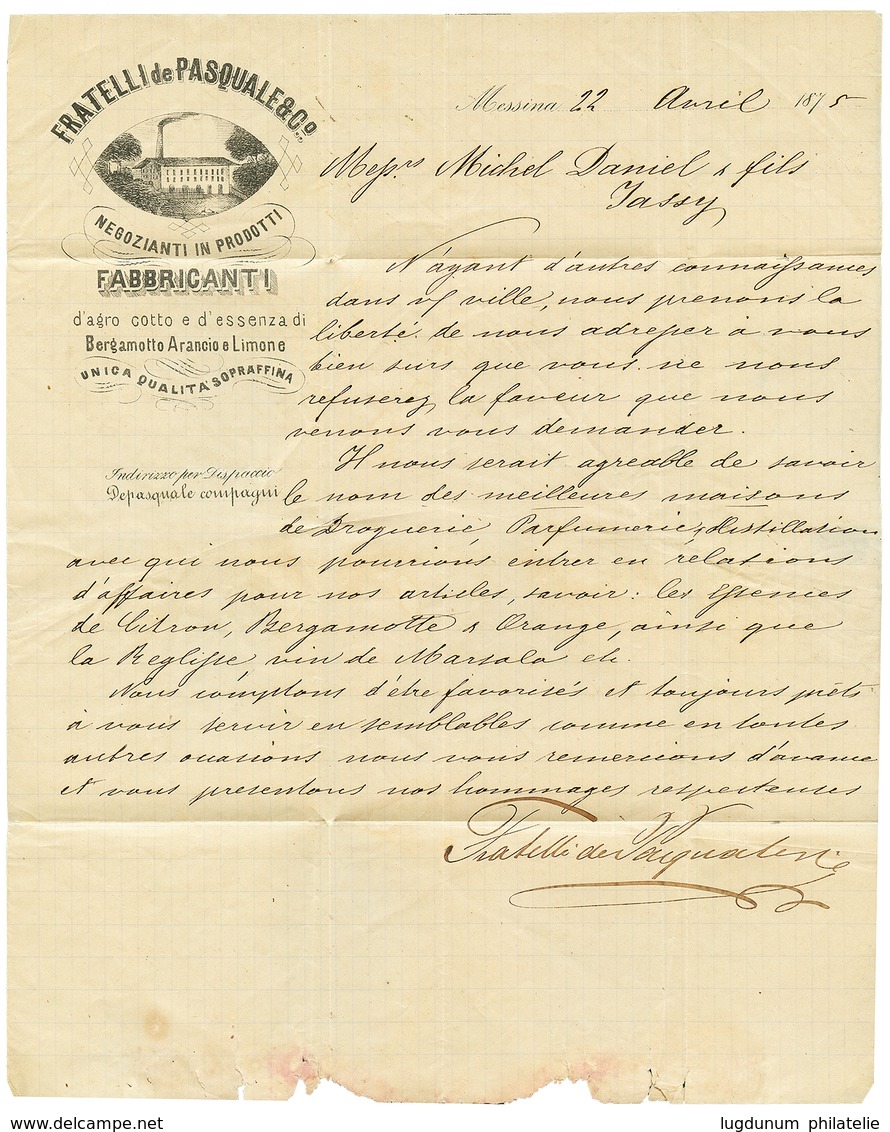 FRATELLI de PASQUALE & Co.
NEGOZIANTI IN PRODOTTI
FABBRICANTI
d'agro cotto e d'essenza di
Bergamotto Arancio e Limone
UNICA QUALITÀ SOPRAFFINA
Indirizzo per Dispaccio
Depasquale compagni
Messina 22 Avril 1875
Messrs Michel Daniel & fils
Jassy
N'ayant d'autres connaissances
dans vf ville, nous prenons la
liberté de nous adresser à vous
bien surs que vous ne nous
refuserez la faveur que nous
venons vous demander.
Il nous serait agreable de savoir
le nom des meilleures maisons
de Droguerie, Parfumerie, & Distillation
avec qui nous pourrions entrer en relations
d'affaires pour nos articles, savoir: les Essences
de Citron, Bergamotte & Orange, ainsi que
la Reglisse vin de Marsala etc.
Nous comptons d'être favorisés et toujours prêts
à vous servir en semblables comme en toutes
autres occasions nous vous remercions d'avance
et vous presentons nos hommages respectueuses
Fratelli de Pasquale & Ce
lugdunum philatelie